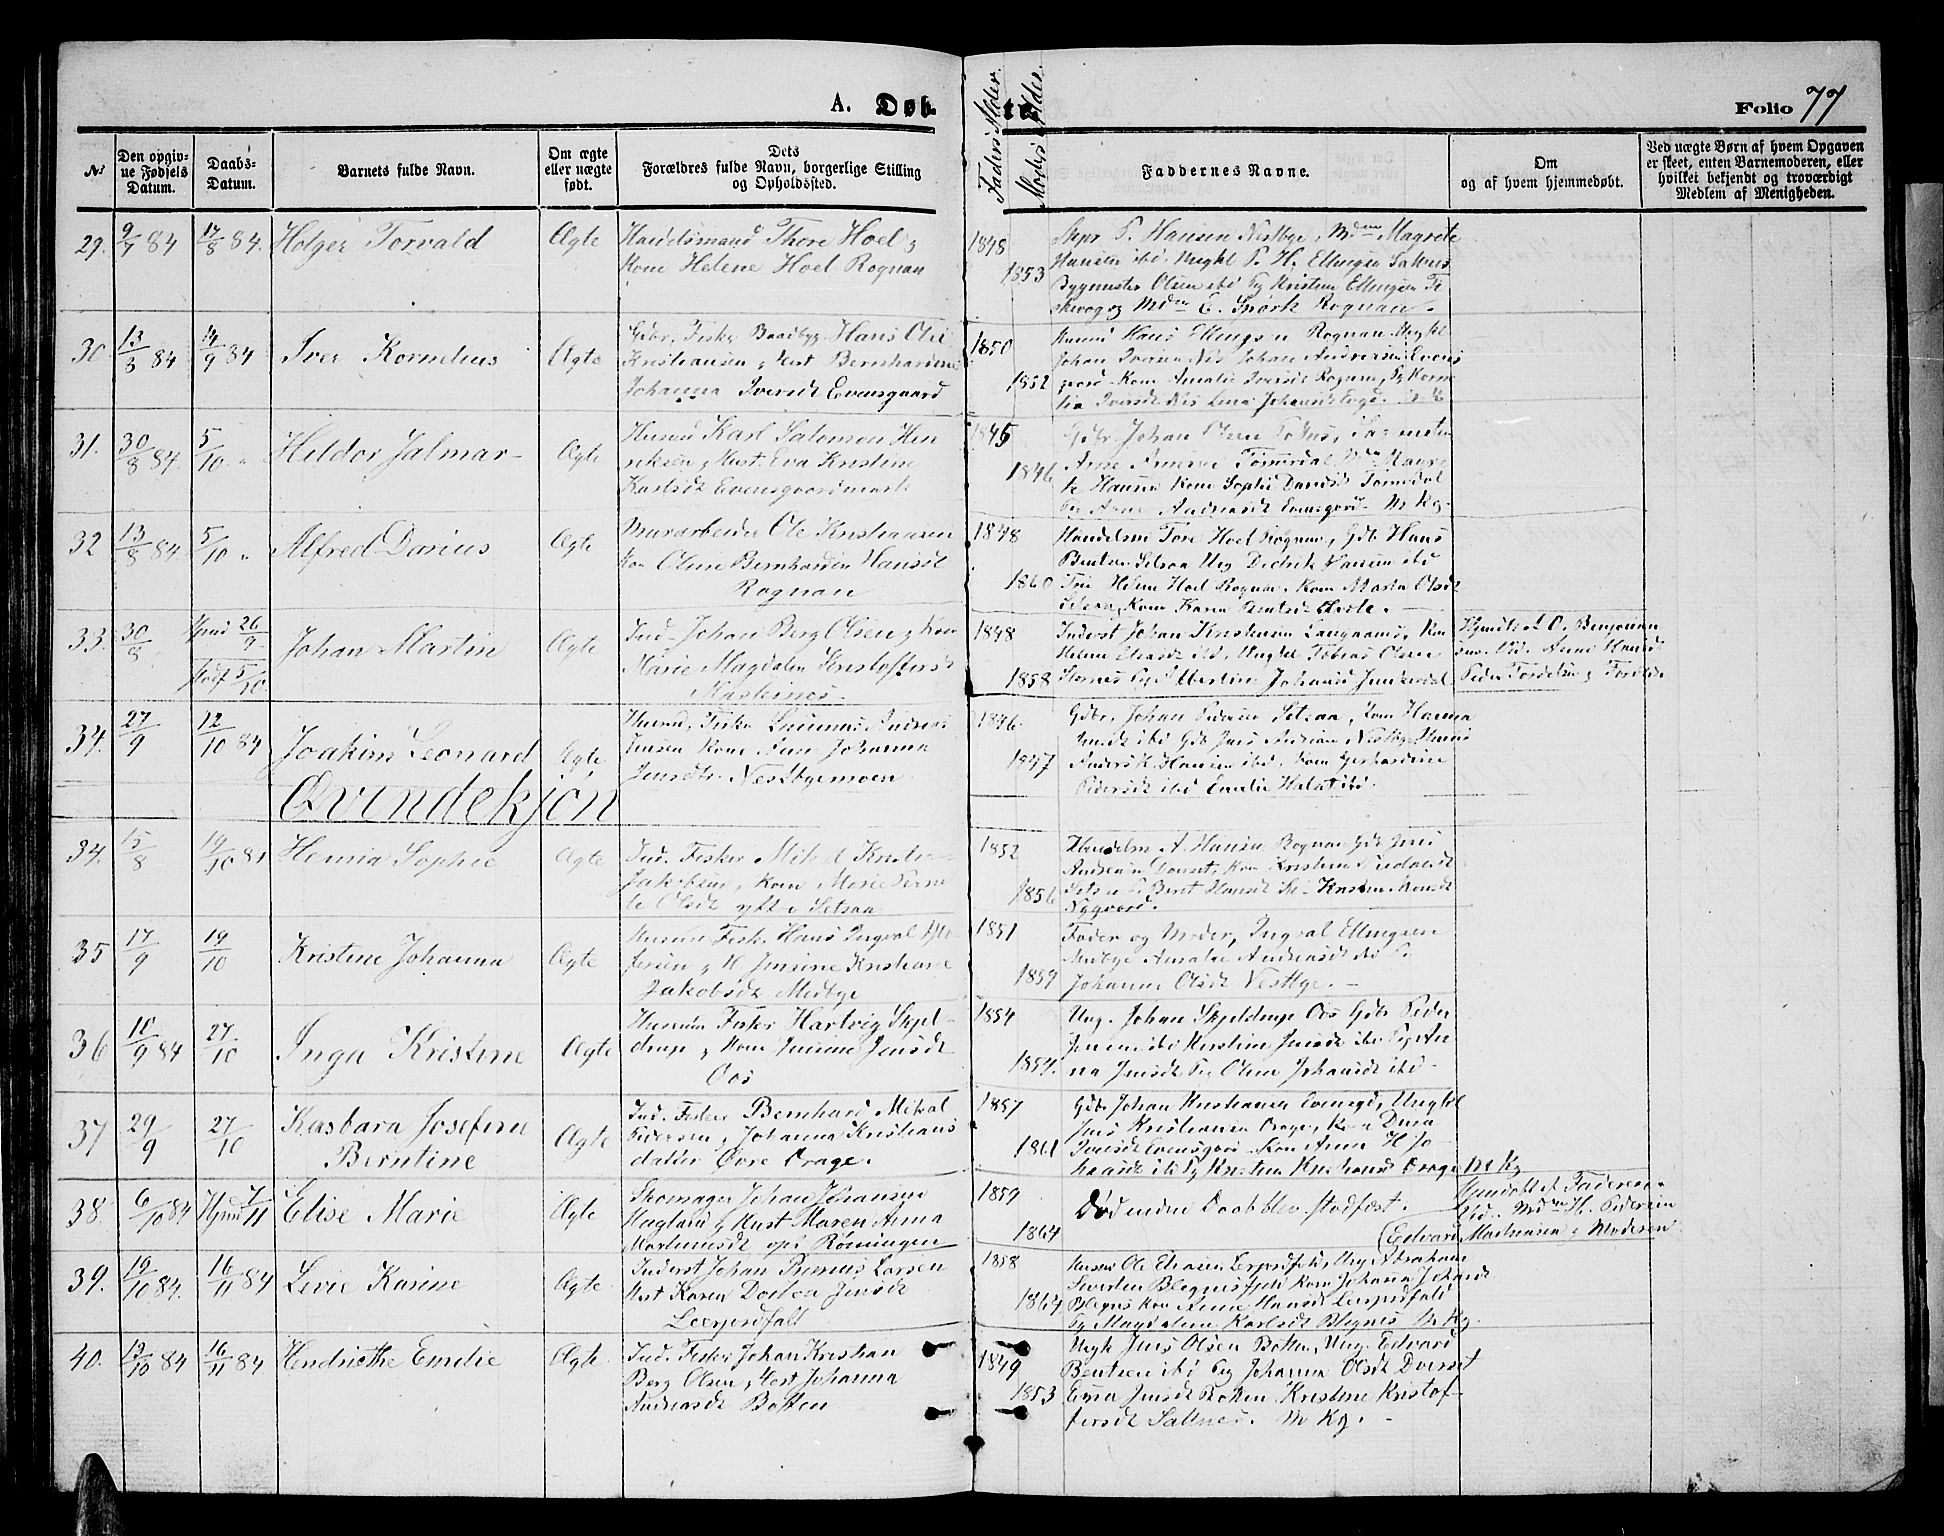 A. Døbte.
Folio 77
No
Den opgivne Fødsels Datum.
Daabs-Datum.
Barnets fulde Navn.
Om ægte eller uægte født.
Dets Forældres fulde Navn, borgerlige Stilling og Opholdssted.
Faders Alder.
Moders Alder.
Faddernes Navne.
Om og af hvem hjemmedøbt.
Ved uægte Børn af hvem Opgaven er skeet, enten Barnemoderen, eller hvilket bekjendt og troværdigt Medlem af Menigheden.
29. 9/7 84 17/8 84. Holger Torvald Ægte
Handelsmand Thore Hoel g
Kone Helene Hoel Rognan
1848
1853
Hansen Nestbye, Mdm Magrete
Hansen ibd Ungkl P. H. Ellingsen Saltnes
Bygmester Olsen ibd Pg Kristine Ellingsen Fi
skevog og Mdm E. Snørk Rognan.
30 13/3 84 14/9 84 Iver Kornelius Ægte
Gdbr, Fisker Baadbyg Hans Ole
Kristiansen g Hust Bernhardine
Johanna Iversdt Evensgaard
1850
1852
Husmd Hans Ellingsen Rognan Ungkl
Johan Iversen Nes Johan Andersen Evens
gord Kone Amalie Iversdt Rognan, Pg Korne
lia Iversdt Nes Lina Johansdt
31. 30/8 84. 5/10 " Hildor Jalmar Ægte
Husmd Karl Salomon Hen
riksen g Hust. Eva Kristine
Karlsdt Evensgaardmark
1845
1846
Gdbr Johan Olsen
Arne Tømmerdal Mdm Magre
te Hansen Kone Sophie Danielsdt Tømmerdal
Pg Anne Andreasdt Evensgord. M Kg.
32 13/8 84 5/10 " Alfred Darius Ægte
Murarbeider Ole Kristiansen
Kon Oline Bernhardine Hansdt
Rognan
1848
1860
Handelsm Tore Hoel Rognan, Gdb Hans
Bentsen Setsaa Ung Diedrik Hansen ibd
Helene Hoel Rognan, Kone Marta Olsdt
Setsaa, Kone Karen
33. 30/8 Hjemd 26/9 Stadf 5/10 Johan Martin Ægte
Ind. Johan Berg Olsen g Kon
Marie Magdalena Kristoffersdt
1848
1858
Inderst Johan Kristensen Langaanes, Kon
Helene Eliasdt ibd, Ungkl Tobias Olsen
Pg Albertine Johansd Junkerdal
Hjemdt af O. Benjamin
Vid. Anne Knuds
Peder
34. 27/9 12/10 84 Joakim Leonard Ægte
Husmd, Fisker Andreas
Jensen Kone Ane Johanna
Jensdtr Nestbyemoen
1846
1847
Gdbr, Johan Pedersen Setsaa, Kone Hanna
Jensdt ibd Gdb Jens Andreas Nestbye, Husmd
Anders K Hansen ibd, Kone Gerhardine
Pedersdt ibd Emelie ibd.
Qvindekjön
34. 15/8 19/10 84 Hennia Sophie Ægte
Ind. Fisker Mikal Kristen
Jakobsen, Kone Marie Perni
le Olsdt Setsaa
1852
1856
Handelsm A. Hansen Rognan Gdb Jens
Andsen Dverset, Kon Kristine
Setsaa Pg Berit Hansdt Kristen
Nygaard.
35 17/9 19/10 Kristine Johanna Ægte
Husm Fisker Hans Ingval
g H Jensine Kristiane
Jakobsdt Medbye
1851
1859
Fader og Moder, Ingval Ellingsen
Medbye Amalie Andreasdt ibd
Johanne Olsdt Nestbye.
36 18/9 84 27/10 Inga Kristine Ægte
Husmd Fisker Hartvig Skjel-
drup g Kone Jensine Jensdt
Oos
1854
1854.
Ung. Johan Skjeldrup Oos Gdbr Peder
Jensen ibd Kirstine Jensdt ibd Pg An
na Jensdt Pg Oline Johansdt ibd.
37 29/9 27/10 Kasbara Josefine Berntine Ægte
Ind. Fisker Bernhard Mikal
Pedersen g Johanna Kristians
datter Øvre Drage.
1857
1861
Gdb Johan Kristiansen Evensgd, Ungkl
Jens Kristiansen Drage, Kone Dina
Iversdt Evensgord Kon Anne H Jo
hansdt ibd Pg Kristine Kristiansdt Drage M Kg
38. 6/10 84 Hjemd 7/11 Elise Marie Ægte
Skomager Johan Johansen
Hagland g Hust Maren Anna
Martinusdt ops Röningen
1859
1864
Död inden Daab blev stadfæst.
Hjemdöbt af Faderen
Vid. Mdm H. Pedersen
Edvard Martinusen g Moderen
39. 19/10 84. 16/11 84 Levie Karine Ægte
Inderst Johan Primus Larsen
Hust Karen Dortea Jensdt
Leerjordfald
1858
1864
Husmd Ole Eliasen Lerjordfald, Ung Abraham
Sivertsen Blegnesfjeld Kone Johanna Johansdt
Blegnes Kon Anne Hansdt Leerjordfald
Pg Magdalene Karlsdt Blegnes M Kg.
40. 19/10 84 16/11 84 Hendriethe Emelie Ægte
Ind. Fisker Johan Kristian
Berg Olsen g Hust Johanna
Andreasdt Botten
1849
1853
Ungk Jens Olsen Botten, Ung. Edvard
Bentsen ibd Pg Johanna Olsdt Dverset
Edna Jensdt Botten Kristine Kristof-
fersdt Saltnes. M Kg.